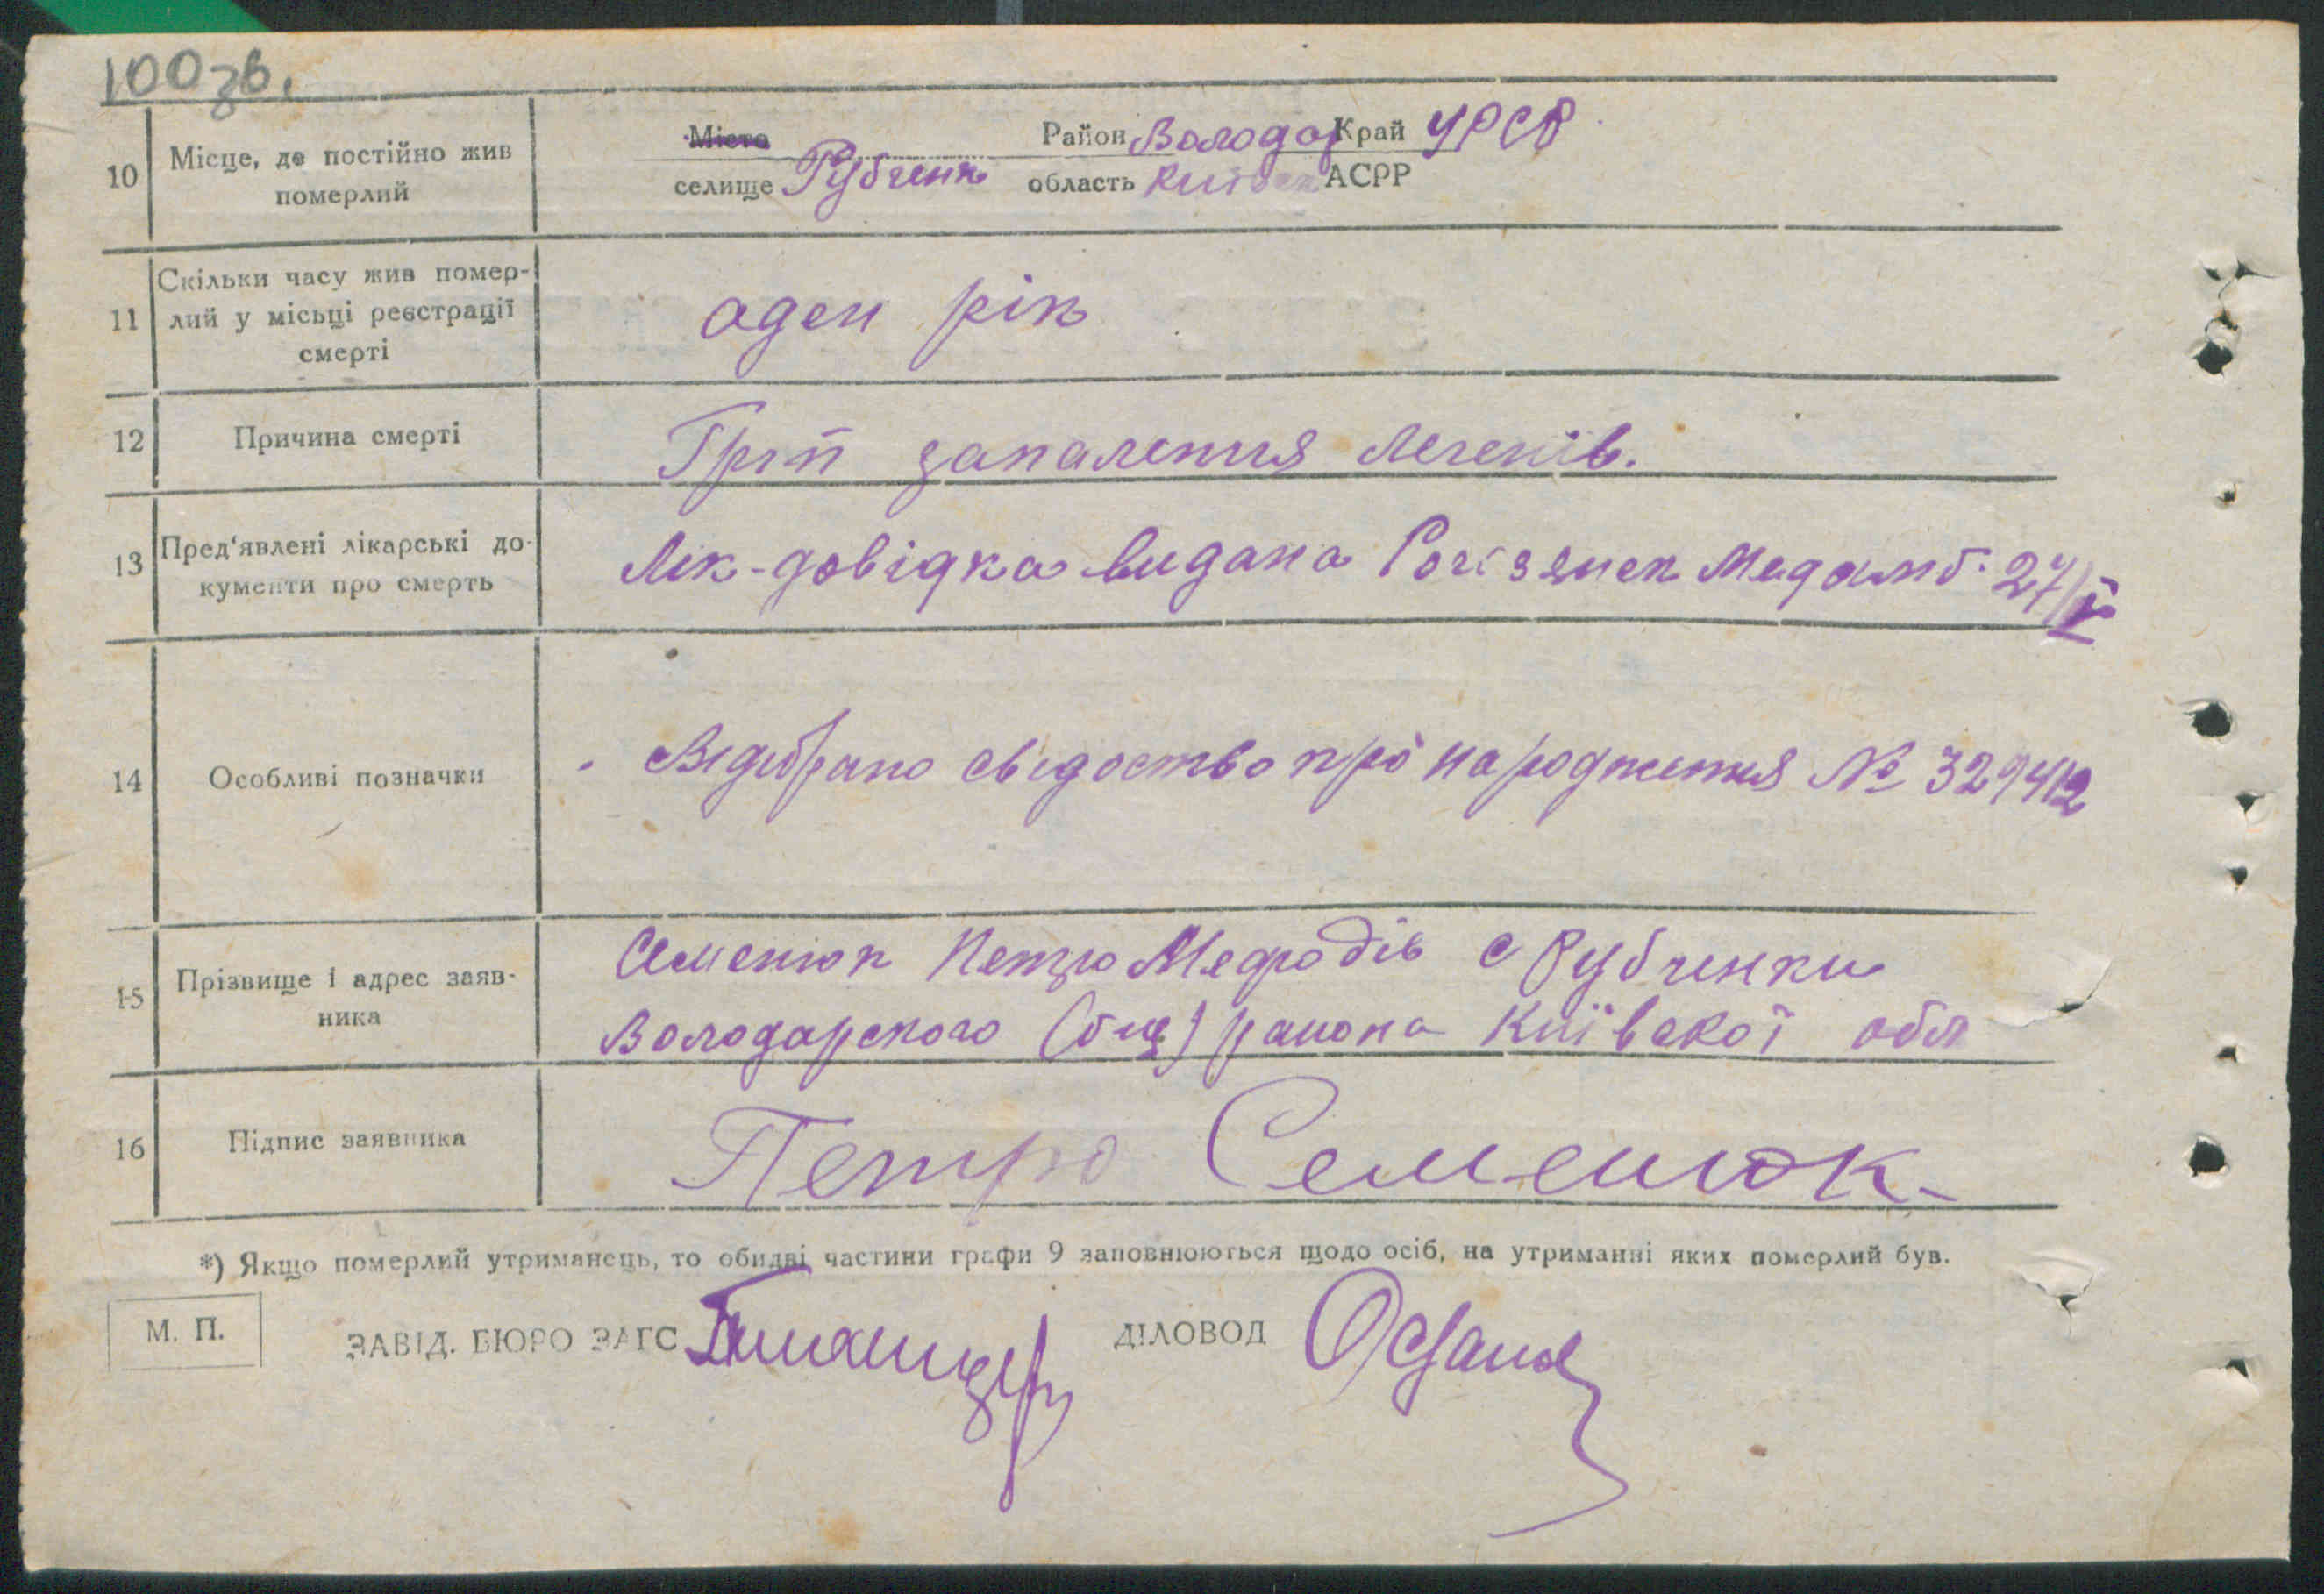 100зв.
10 Місце, де постійно жив померлий
Місто Район Володар Край УРСР
селище Рубченк область Київськ АСРР
11 Скільки часу жив помер-
лий у місьці реєстрації
смерті
оден рік
12 Причина смерті
Гріп запалення легенів.
13 Пред'явлені лікарські до-
кументи про смерть
Лік-довідка видана Медамб. 27/V
14 Особливі позначки
Відибрано свідоство про народження № 329412
15 Прізвище і адрес заяв-
ника
Семенюк Петро Мефодів с Рубченки
Володарского района Київскої обл
16 Підпис заявника
Петро Семенюк
*) Якщо померлий утриманець, то обидві частини графи 9 заповнюються щодо осіб, на утриманні яких померлий був.
М. П.
ЗАВІД. БЮРО ЗАГС
ДІЛОВОД